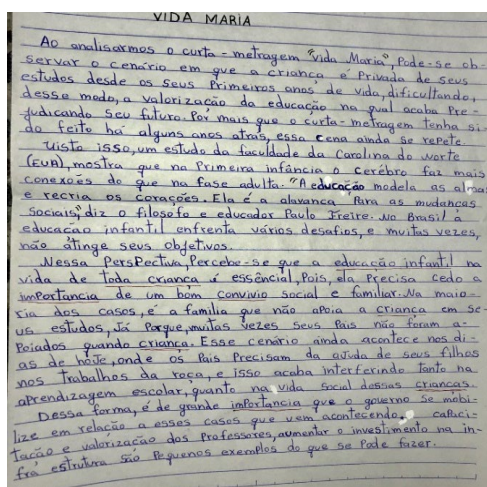 VIDA MARIA
Ao analisarmos o curta-metragem "vida Maria", Pode-se ob-
servar o cenário em que a criança é Privada de seus
estudos desde os seus Primeiros anos de vida, dificultando,
desse modo, a valorização da educação na qual acaba Pre-
judicando seu futuro. Por mais que o curta-metragem tenha si-
do feito há alguns anos atrás, essa cena ainda se repete.
Visto isso, um estudo da faculdade da Carolina do Norte
(EUA), mostra que na Primeira infância o cérebro faz mais
conexões do que na fase adulta. "A educação modela as almas
e recria os corações. Ela é a alavanca Para as mudanças
sociais", diz o filosofo e educador Paulo Freire. No Brasil à
educação infantil enfrenta vários desafios, e muitas vezes,
não atinge seus objetivos.
Nessa Perspectiva, Percebe-se que a educação infantil na
vida de toda criança é essêncial, Pois, ela Precisa cedo a
importancia de um bom convivio social e familiar. Na maio-
ria dos casos, é a familia que não apoia a criança em se-
us estudos, Já Porque, muitas vezes seus Pais não foram a-
Poiados quando criança. Esse cenário ainda acontece nos di-
as de hoje, onde os Pais Precisam da ajuda de seus filhos
nos trabalhos da roça, e isso acaba interferindo tanto na
aprendizagem escolar, quanto na vida social dessas crianças.
Dessa forma, é de grande importancia que o governo se mobi-
lize em relação a esses casos que vem acontecendo, capaci-
tação e valorização dos Professores, aumentar o investimento na in-
fra estrutura são Pequenos exemplos do que se Pode fazer.